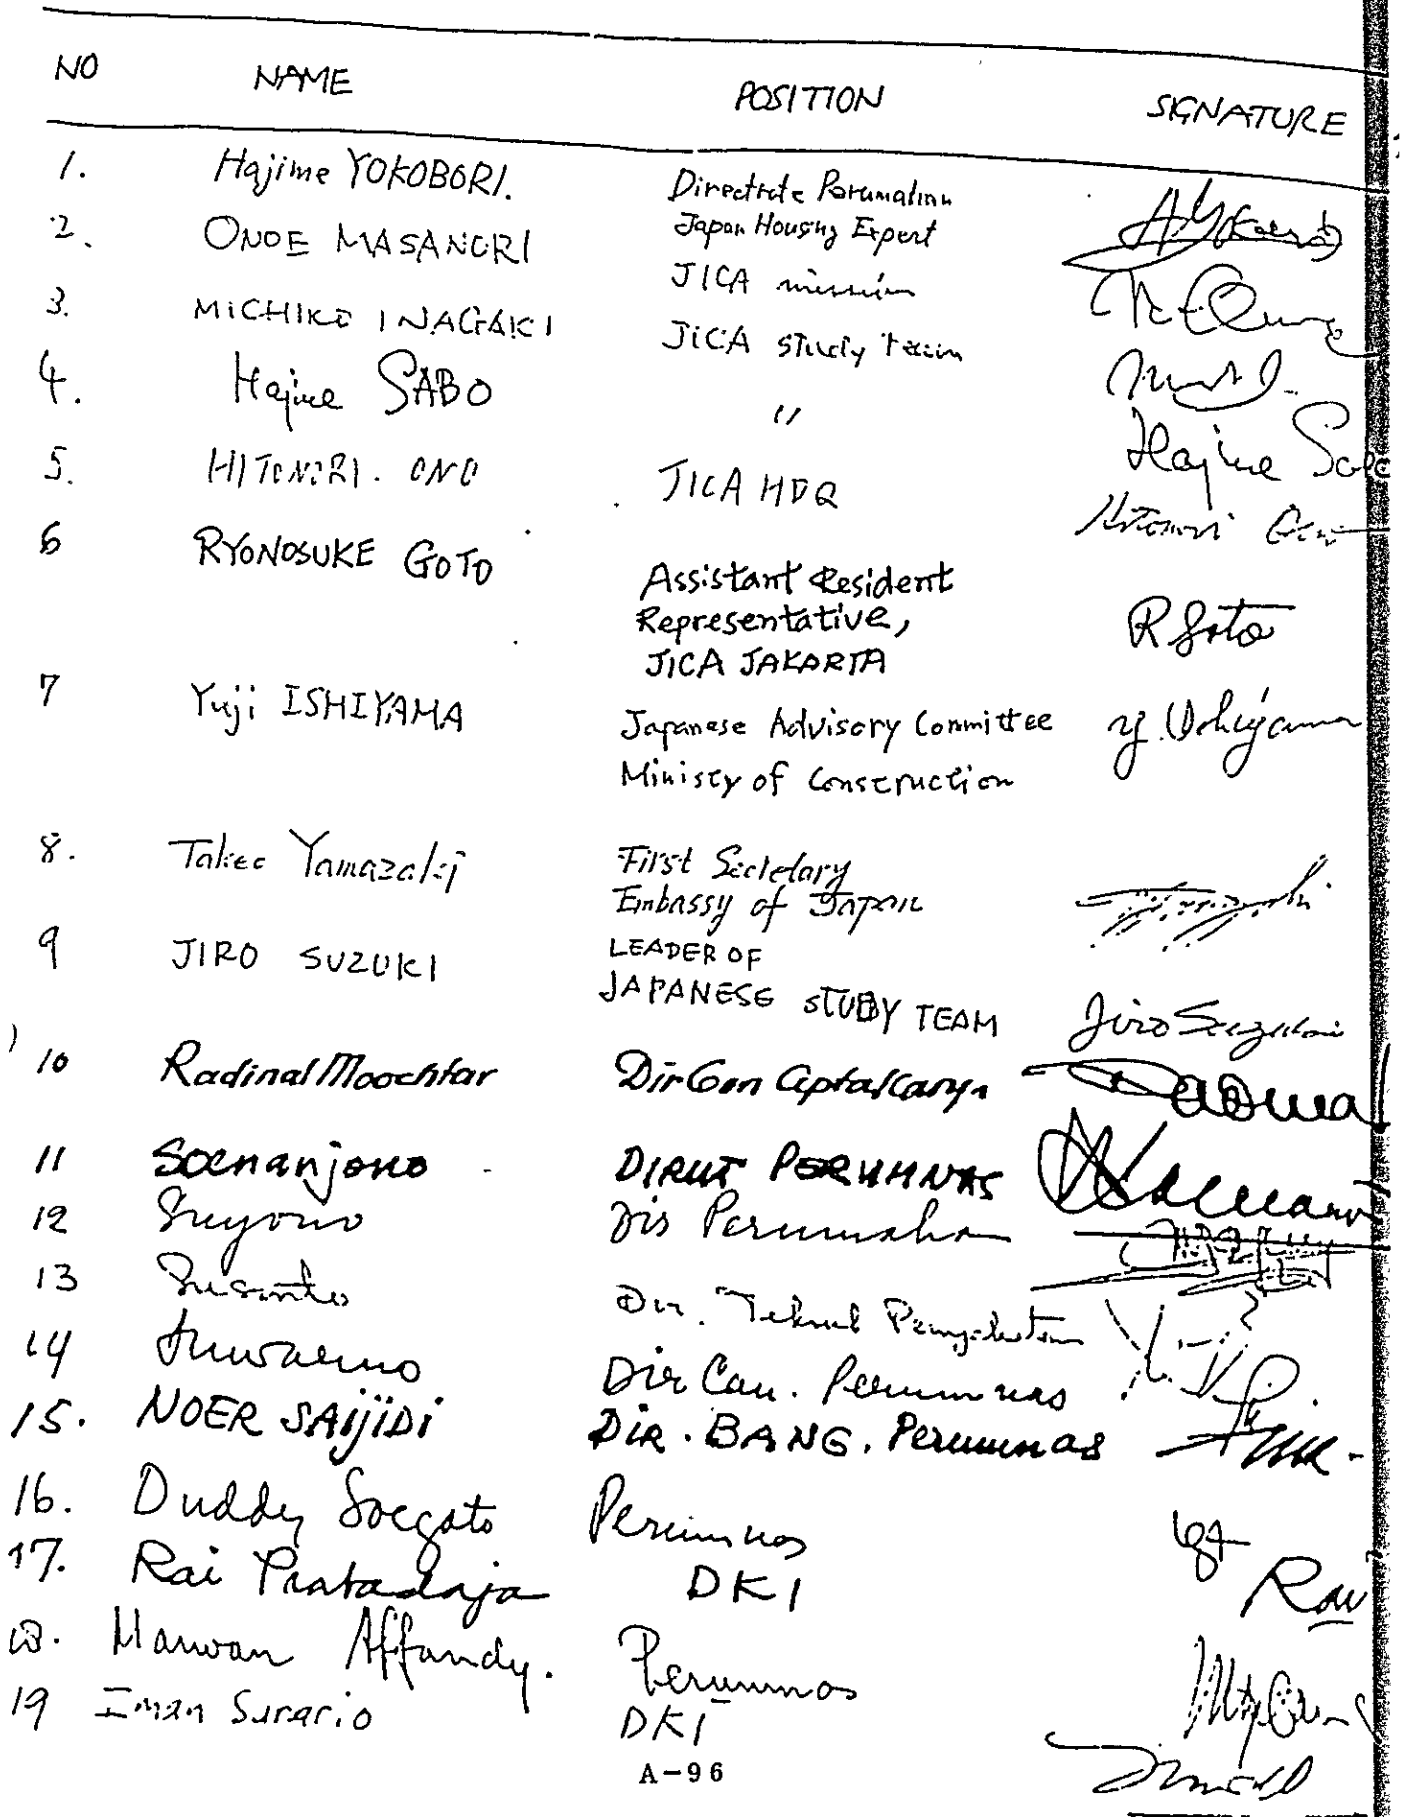 NO NAME POSITION SIGNATURE
1. Hajime YOKOBORI. Directrate Parumahan
Japan Housing Expert
2. ONOE MASANORI JICA mission
3. MICHIKO INAGAKI JICA study team
4. Hajime SABO " Hajime
5. HITONORI. ONO JICA HDQ
6 RYONOSUKE GOTO Assistant Resident
Representative,
JICA JAKARTA R Goto
7 Yuji ISHIYAMA Japanese Advisory Committee Y. Ishiyama
Ministy of Construction
8. Takeo Yamazaki First Secretary
Embassy of Japan
9 JIRO SUZUKI LEADER OF
JAPANESE STUDY TEAM Jiro Suzuki
10 Radinal Moochtar Dir Gen Cipta Karya
11 Soenarjono DIRUT PERUMNAS
12 Suyono Dis Perumahan
13 Susanto Dir. Teknik
14 Suwarno Dir Can. Perumnas
15. NOER SAIJIDI DIR. BANG. Perumnas
16. Duddy Soegoto Perumnas
17. Rai Pratadaja DKI Rai
18. Marwan Affandy. Perumnas
19 Iman Sunario DKI
A-96